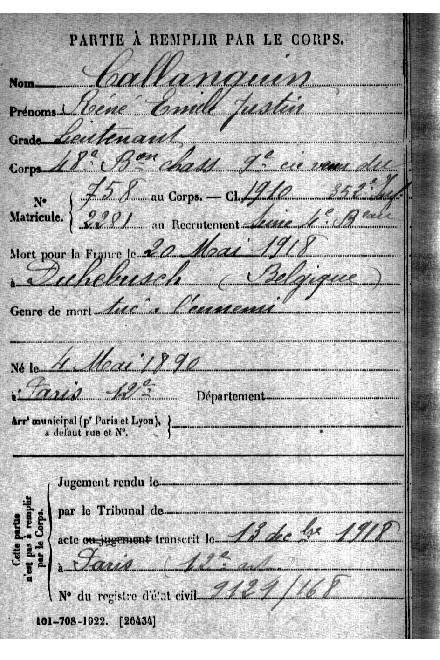 PARTIE À REMPLIR PAR LE CORPS.
Nom Callanquin
Prénoms René Emile Justin
Grade Lieutenant
Corps 48e Bon Chass 9e cie venu du
352e Inf
N° Matricule. { 758 au Corps. — Cl. 1910
2281 au Recrutement Seine 4e Beau
Mort pour la France le 20 Mai 1918
à Dickebusch (Belgique)
Genre de mort tué à l'ennemi
Né le 4 Mai 1890
à Paris 12e Département
Arrt municipal (pr Paris et Lyon), à défaut rue et N°. }
Cette partie n'est pas à remplir par le Corps.
Jugement rendu le
par le Tribunal de
acte ou jugement transcrit le 13 decbre 1918
à Paris 12e art
N° du registre d'état civil 9129/468
101-708-1922. [26434]